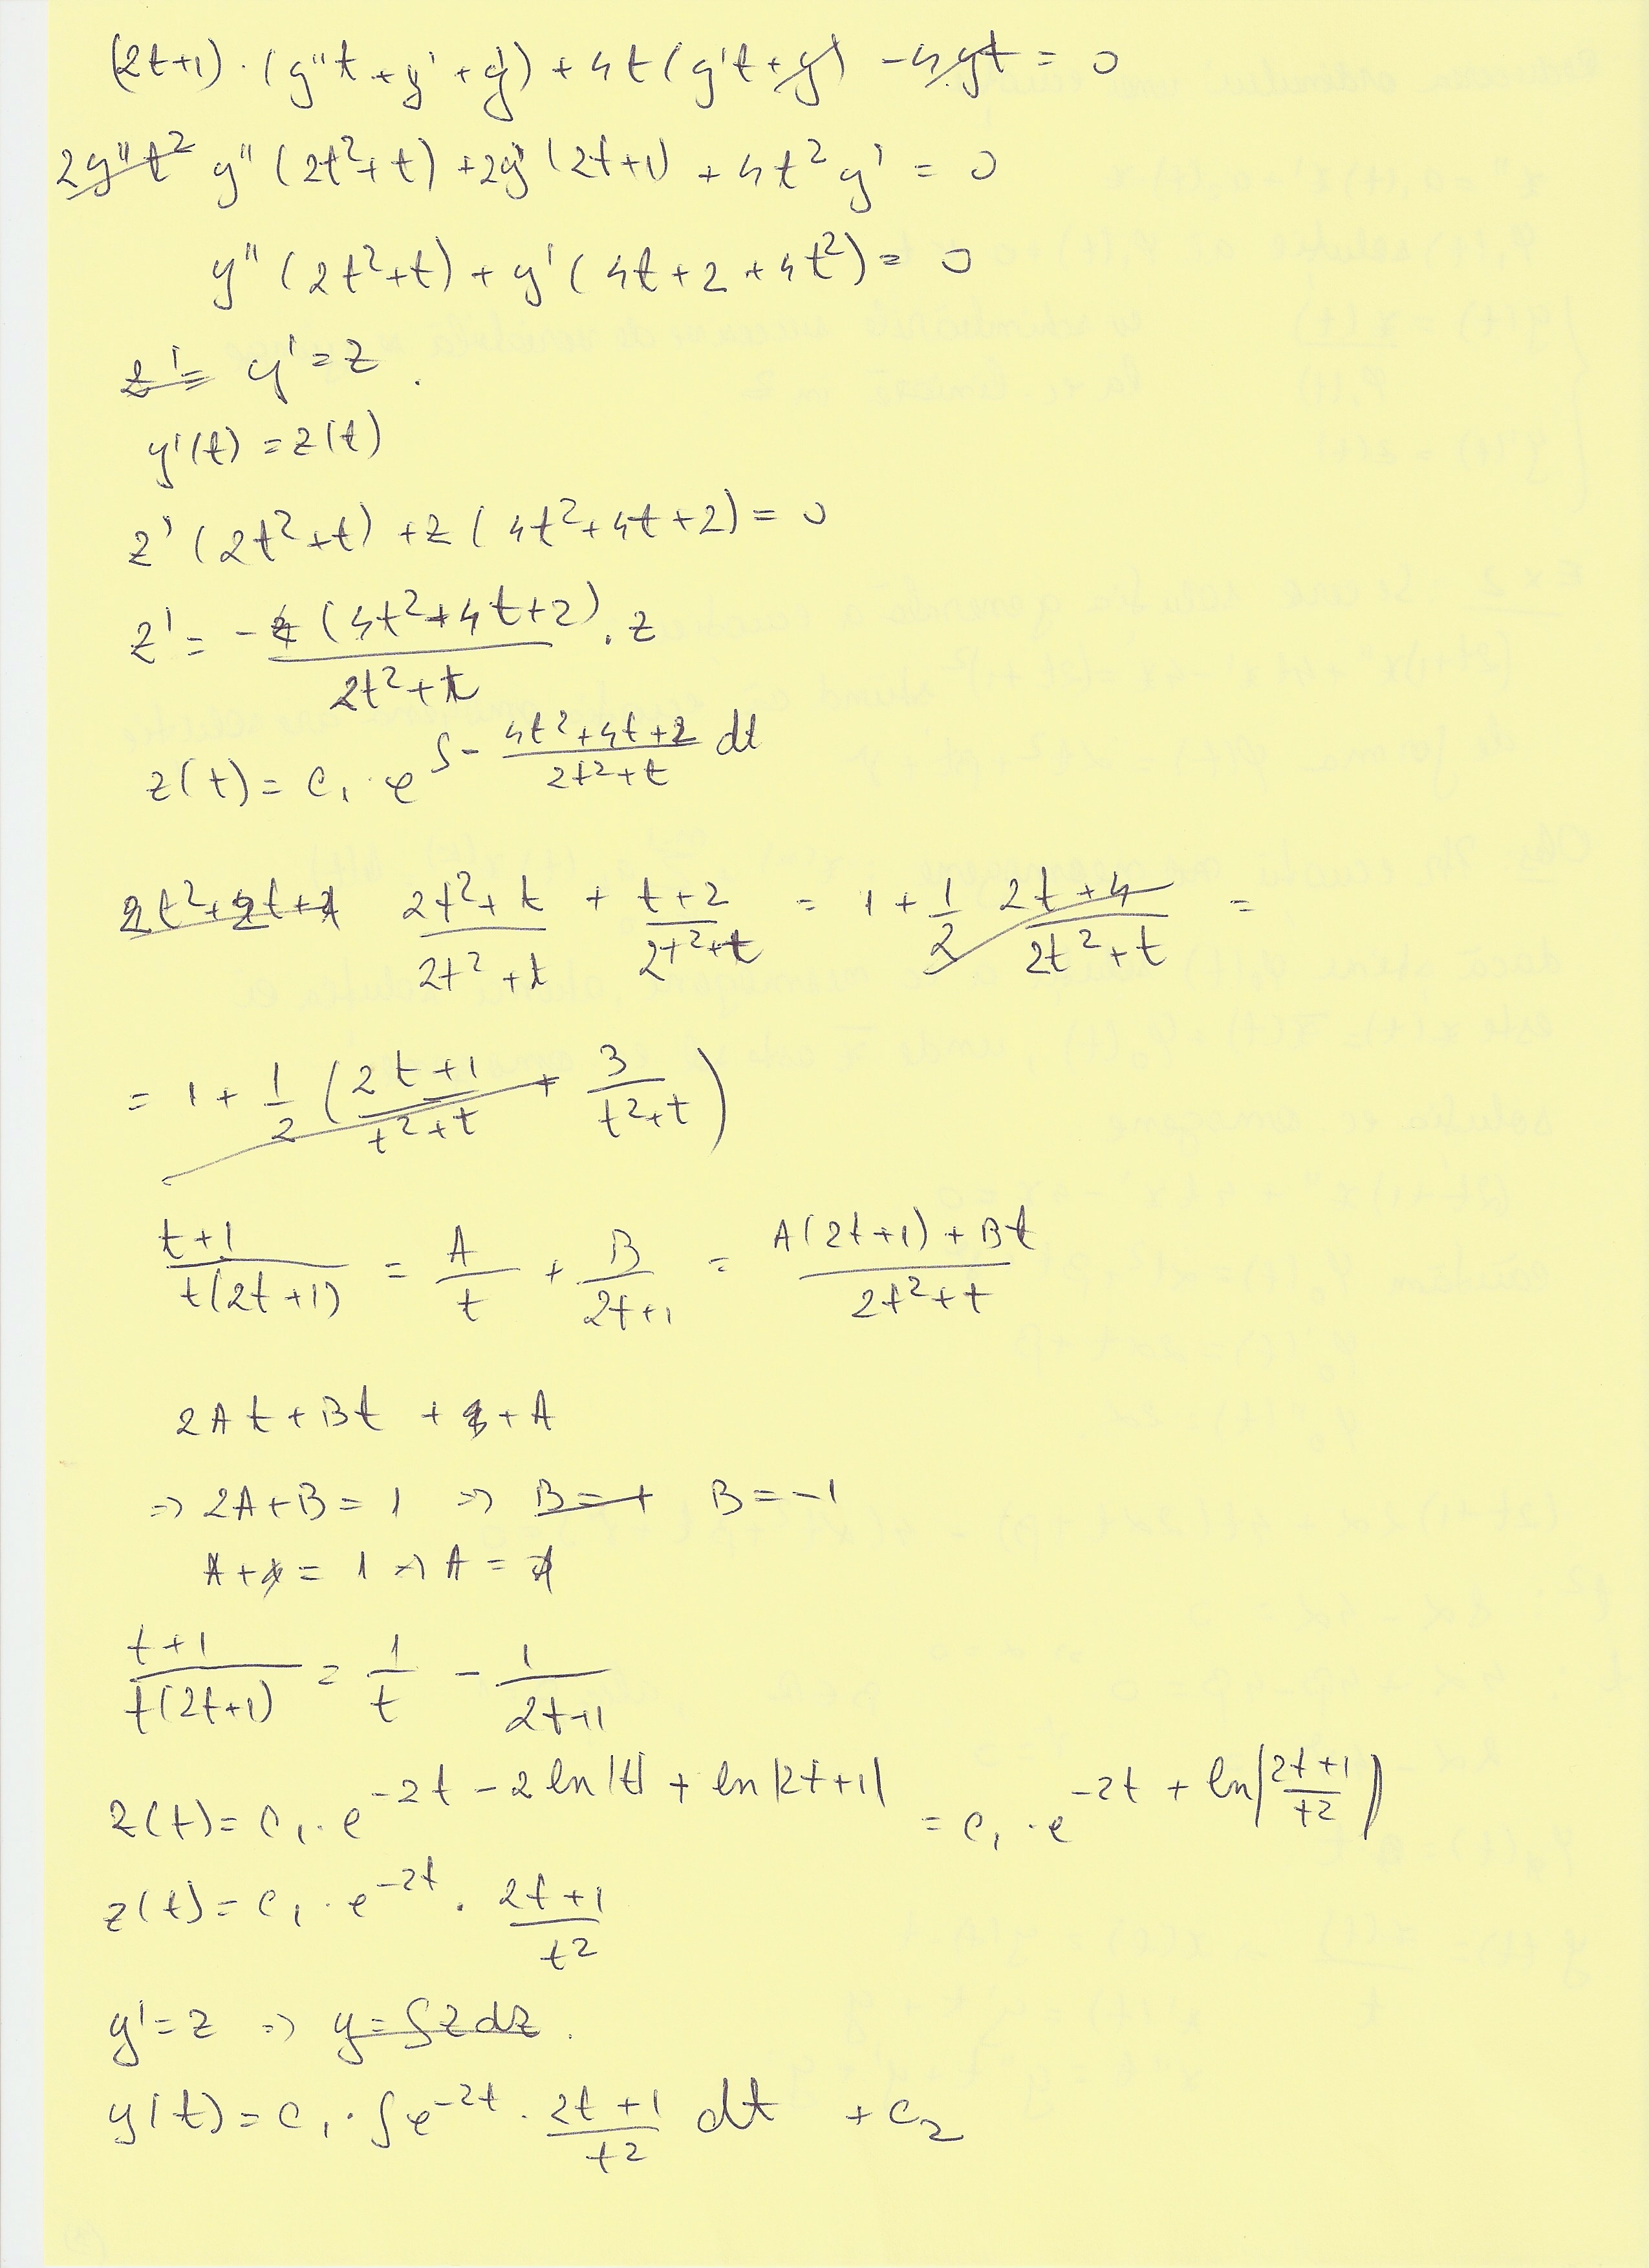 (2t+1)·(y''t+y'+y')+4t(y't+y)-4yt=0
2y''t² y''(2t²+t)+2y'(2t+1)+4t²y'=0
y''(2t²+t)+y'(4t+2+4t²)=0
z'= y'=z.
y'(t)=z(t)
z'(2t²+t)+z(4t²+4t+2)=0
z'= -(4t²+4t+2)/(2t²+t) · z
z(t)=c₁·e^∫-(4t²+4t+2)/(2t²+t) dt
2t²+2t+1 (2t²+t)/(2t²+t) + (t+2)/(2t²+t) = 1+1/2 (2t+4)/(2t²+t) =
= 1+1/2((2t+1)/(t²+t) + 3/(t²+t))
(t+1)/(t(2t+1)) = A/t + B/(2t+1) = (A(2t+1)+Bt)/(2t²+t)
2At+Bt + +A
=> 2A+B=1 => B=+ B=-1
A+ = 1 => A = 1
(t+1)/(t(2t+1)) = 1/t - 1/(2t+1)
z(t)=c₁·e^(-2t-2ln|t|+ln|2t+1|) = c₁·e^(-2t+ln|(2t+1)/t²|)
z(t)=c₁·e^(-2t)·(2t+1)/t²
y'=z => y=∫zdz.
y(t)=c₁·∫e^(-2t)·(2t+1)/t² dt +c₂